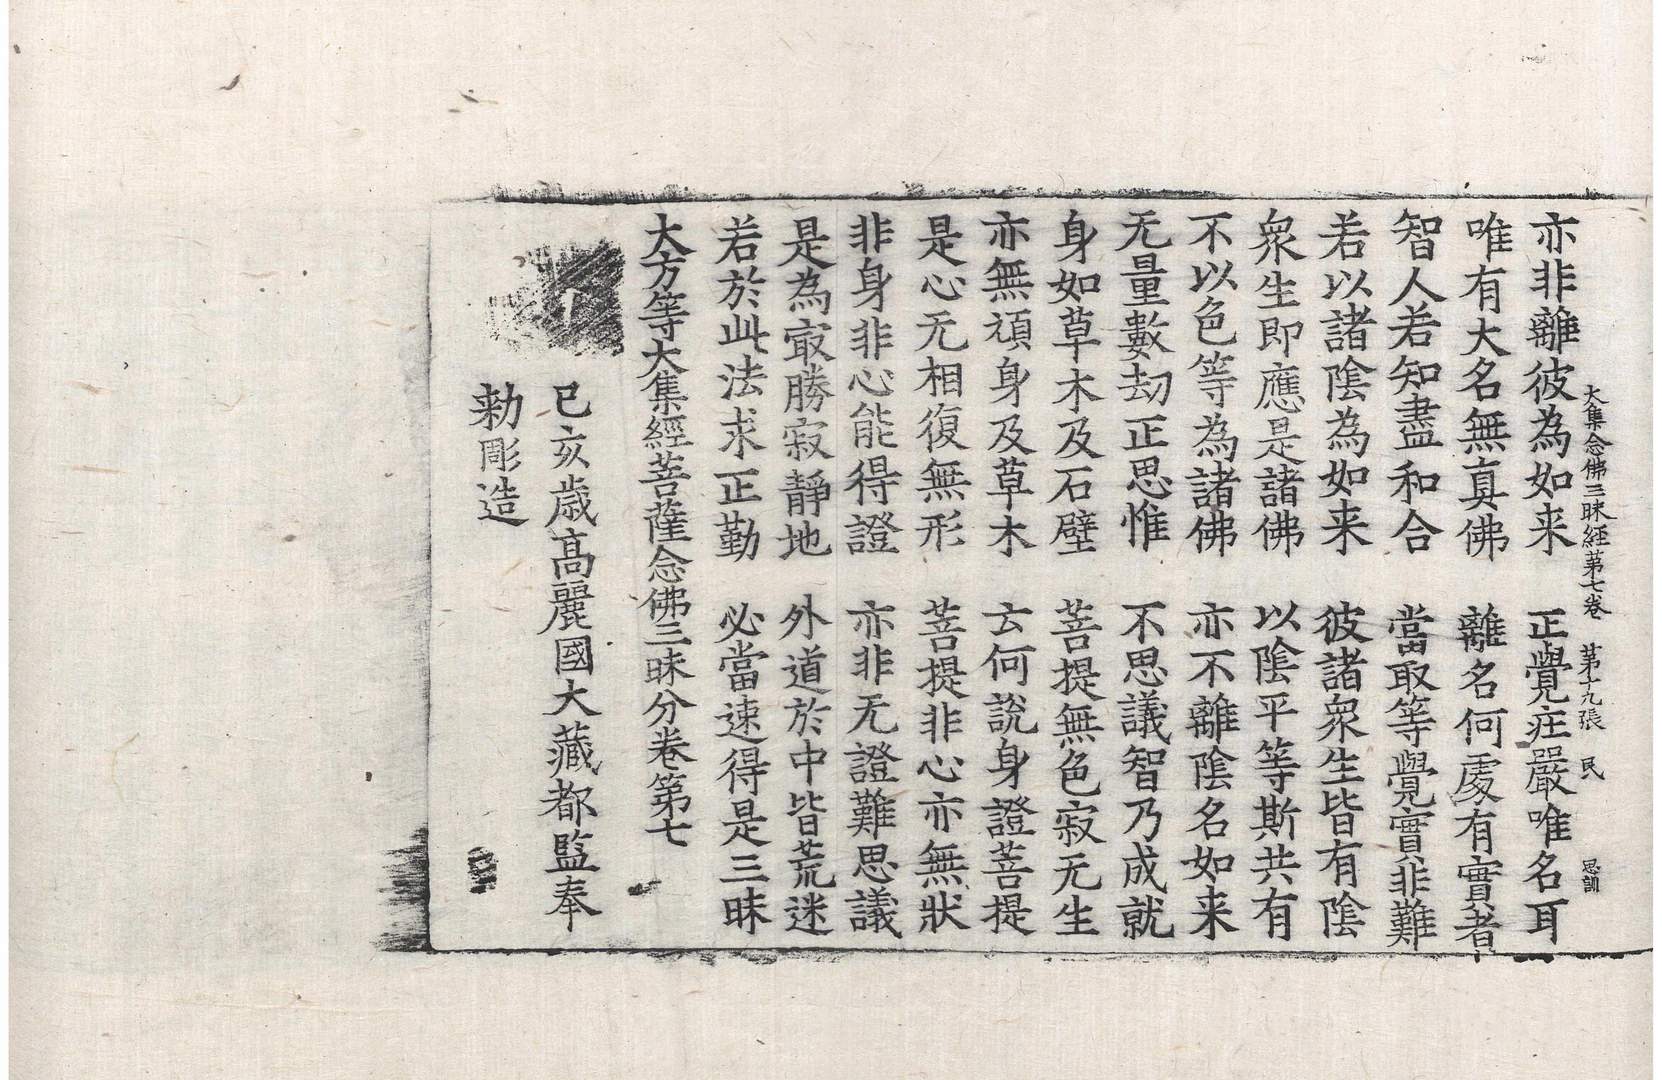 大集念佛三昧經第七卷 第十九張 民 思訓
亦非離彼為如来 正覺㽵嚴唯名耳
唯有大名無真佛 離名何處有實者
智人若知盡和合 當取等覺實非難
若以諸陰為如来 彼諸衆生皆有陰
衆生即應是諸佛 以陰平等斯共有
不以色等為諸佛 亦不離陰名如来
无量數劫正思惟 不思議智乃成就
身如草木及石壁 菩提無色寂无生
亦無頑身及草木 云何說身證菩提
是心无相復無形 菩提非心亦無狀
非身非心能得證 亦非无證難思議
是為㝡勝寂靜地 外道於中皆荒迷
若於此法求正勤 必當速得是三昧
大方等大集經菩薩念佛三昧分卷第七
己亥歳高麗國大藏都監奉
勅彫造